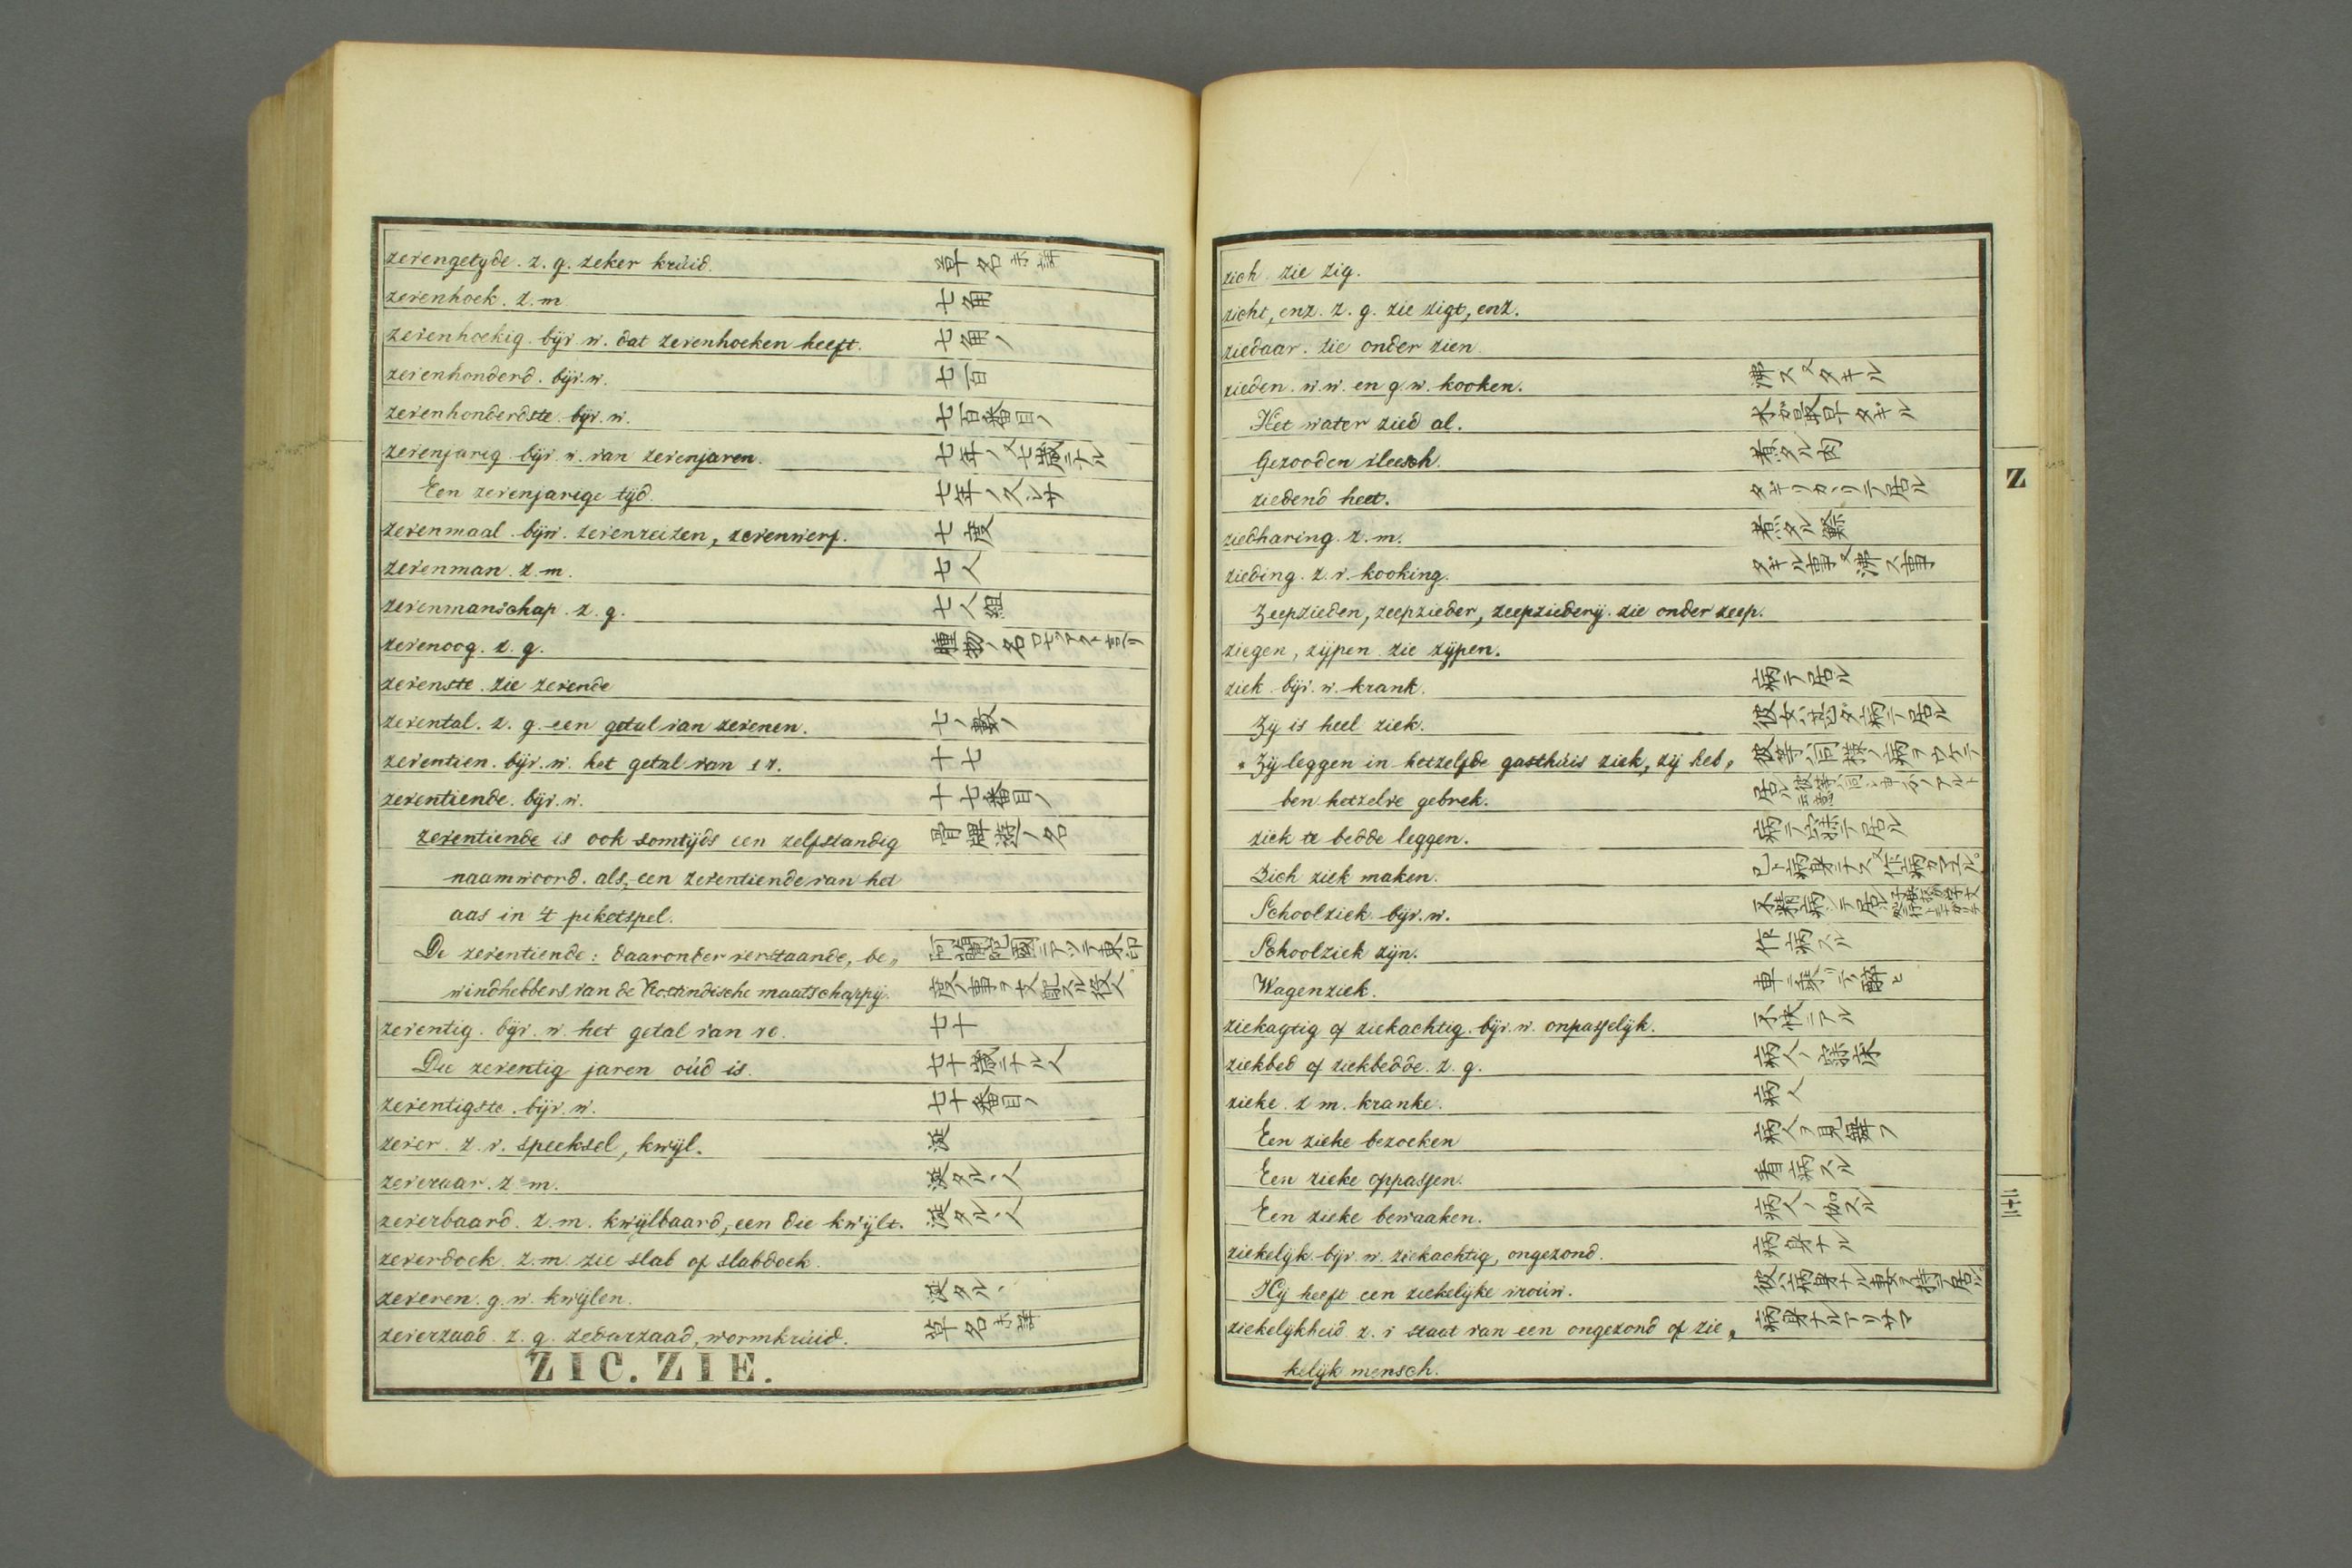 zevengetyde. z. g. zeker krúid. 草名 未詳
zevenhoek. z. m. 七角
zevenhoekig. bijv. w. dat zevenhoeken heeft. 七角ノ
zevenhonderd. bijv. w. 七百
zevenhonderdste. bijv. w. 七百番目ノ
zevenjarig. bijv. w. van zevenjaren. 七年ノ又七歳ニナル
Een zevenjarige tijd. 七年ノ久シサ
zevenmaal. bijw. zevenreizen, zevenwerf. 七度
zevenman. z. m. 七人
zevenmanschap. z. g. 七人組
zevenoog. z. g. 腫物ノ名
zevenste. zie zevende
zevental. z. g. een getal van zevenen. 七ノ數ノ
zeventien. bijv. w. het getal van 17. 十七
zeventiende. bijv. w. 十七番目ノ
zeventiende is ook somtijds een zelfstandig 骨牌遊ノ名
naamwoord. als, een zeventiende van het
aas in 't piketspel.
De zeventiende: daaronder verstaande, be„ 阿蘭陀國ニアツテ東印
windhebbers van de Oostindische maatschappij. 度ノ事ヲ支配スル役人
zeventig. bijv. w. het getal van 70. 七十
Die zeventig jaren oúd is. 七十歳ニナル人
zeventigste. bijv. w. 七十番目ノ
zever. z. v. speeksel, kwijl. 涎
zeveraar. z. m. 涎タルヽ人
zeverbaard. z. m. kwijlbaard, een die kwijlt. 涎タルヽ人
zeverdoek. z. m. zie slab of slabdoek.
zeveren. g. w. kwijlen. 涎タルヽ
zeverzaad. z. g. zedorzaad, wormkrúid. 草名 未詳
ZIC. ZIE.
zich. zie zig.
zicht, enz. z. g. zie zigt, enz.
ziedaar. zie onder zien.
zieden. w. w. en g. w. kooken. 沸ス又タギル
Het water zied al. 水ガ最早タギル
Gezooden vleesch. 煮タル肉
ziedend heet. タギリカヘリテ居ル
ziedharing. z. m. 煮タル鯡
zieding. z. v. kooking. タギル事又沸ス事
Zeepzieden, zeepzieder, zeepziederij. zie onder zeep.
ziegen, zijpen. zie zijpen.
ziek. bijv. w. krank. 病テ居ル
Zij is heel ziek. 彼女ハ甚ダ病テ居ル
„ Zij leggen in hetzelfde gasthúis ziek, zij heb„ 彼等ハ同様ノ病ヲウケテ
ben hetzelve gebrek. 居ル
ziek te bedde leggen. 病テ寐テ居ル
Zich ziek maken. 己ト病身ニナス又作病カマエル
Schoolziek. bijv. w. 不精病テ居ル
Schoolziek zijn. 作病スル
Wagenziek. 車ニ乗リテ酔ヒ
ziekagtig of ziekachtig. bijv. w. onpasselijk. 不快ニアル
ziekbed of ziekbedde. z. g. 病人ノ寐床
zieke. z. m. kranke. 病人
Een zieke bezoeken 病人ヲ見舞フ
Een zieke oppassen. 看病スル
Een zieke bewaaken. 病人ノ伽スル
ziekelijk. bijv. w. ziekachtig, ongezond. 病身ナル
Hij heeft een ziekelijke vroúw. 彼ハ病身ナル妻ヲ持テ居ル
ziekelijkheid. z. v. staat van een ongezond of zie„ 病身ナルアリサマ
kelijk mensch.
Z